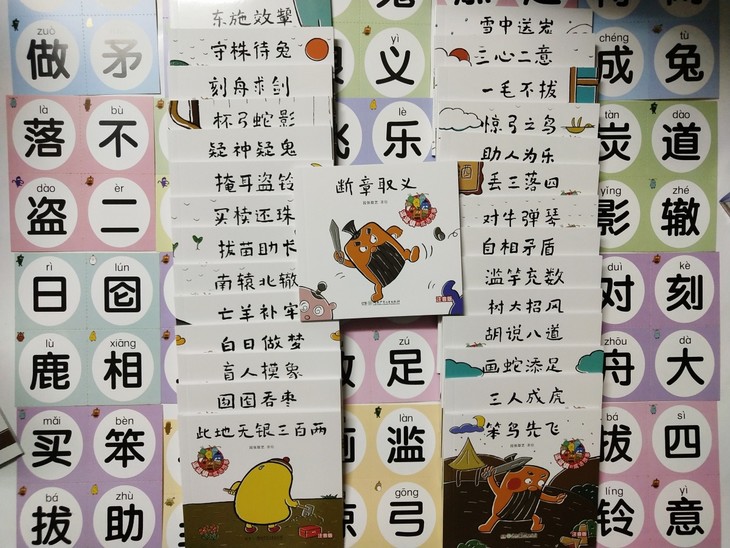 zuò
做 矛
là bù
落 不
dào èr
盗 二
rì lún
日 囵
lù xiāng
鹿 相
mǎi bèn
买 笨
bá zhù
拔 助
东施效颦
守株待兔
刻舟求剑
杯弓蛇影
疑神疑鬼
掩耳盗铃
买椟还珠
拔苗助长
南辕北辙
亡羊补牢
白日做梦
盲人摸象
囫囵吞枣
此地无银三百两
注音版
yì
义
lè
乐
断章取义
注音版
足
làn
滥
gōng
弓
雪中送炭
三心二意
一毛不拔
惊弓之鸟
助人为乐
丢三落四
对牛弹琴
自相矛盾
滥竽充数
树大招风
胡说八道
画蛇添足
三人成虎
笨鸟先飞
注音版
chéng tù
成 兔
tàn dào
炭 道
yǐng zhé
影 辙
duì kè
对 刻
zhōu dà
舟 大
bá sì
拔 四
líng yì
铃 意